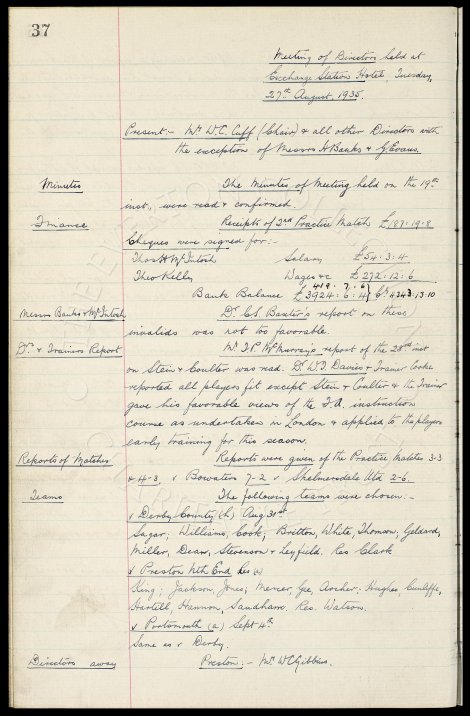 37
Meeting of Directors held at
Exchange Station Hotel, Tuesday,
27th August, 1935.
Present:- Mr. W.C. Cuff (Chair) & all other Directors with
the exception of Messrs H Banks & G Evans.
Minutes The Minutes of Meeting held on the 19th
inst., were read & confirmed.
Finance Receipts of 2nd Practice Match £187.19.8
Cheques were signed for:-
Thos H McIntosh Salary £54.3.4
Theo Kelly Wages &c £272.12.6
Bank Balance £3924.6.4 419.7.6 £4343.13.10
Messrs Banks & McIntosh Dr. C.S. Baxter's report on these
invalids was not too favorable.
Dr. & Trainers Report Mr. T.P. McMurray's report of the 28th inst
on Stein & Coulter was read. Dr. W.J. Davies & Trainer Cooke
reported all players fit except Stein & Coulter & the Trainer
gave his favorable views of the F.A. instruction
course as undertaken in London & applied to the players
early training for this season.
Reports of Matches Reports were given of the Practice Matches 3-3
& 4-3, v Bowaters 7-2 v Skelmersdale Utd 2-6.
Teams The following teams were chosen:-
v Derby County (h) Aug 31st
Sagar; Williams, Cook; Britton, White, Thomson; Geldard,
Miller, Dean, Stevenson & Leyfield. Res Clark
v Preston Nth End Res (a)
King; Jackson, Jones; Mercer, Gee, Archer; Hughes, Cunliffe,
Hartill, Hannon, Sandham. Res. Watson.
v Portsmouth (a) Sept 4th
Same as v Derby.
Directors away Preston:- Mr. W C Gibbins.